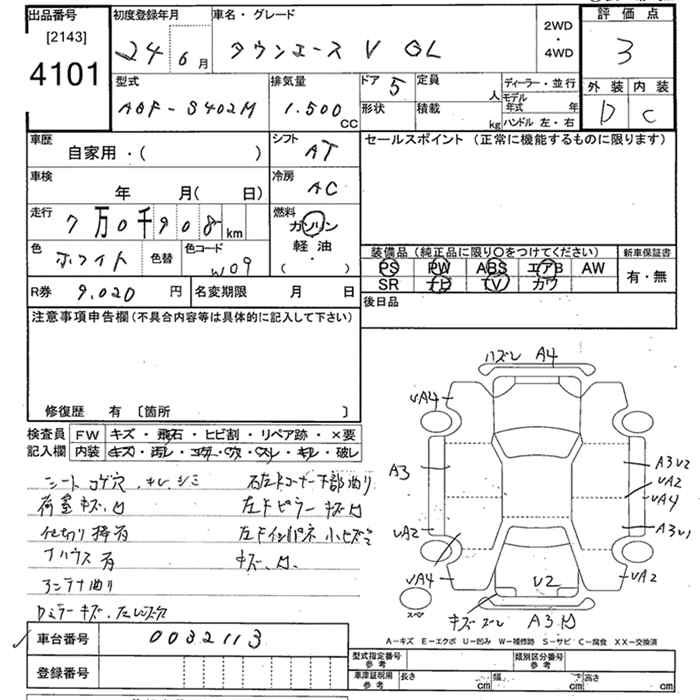 出品番号
[2143]
4101
初度登録年月
24 6月
車名・グレード
タウンエース V GL
2WD
4WD
評価点
3
外装 内装
D C
型式
ABF-S402M
排気量
1.500 CC
ドア 5
定員 人
形状
積載 kg
ディーラー・並行
モデル年式 年
ハンドル 左・右
車歴
自家用・( )
シフト
AT
セールスポイント (正常に機能するものに限ります)
車検
年 月( 日)
冷房
AC
走行
7万0千908 km
燃料
ガソリン
軽油
( ・ )
色
ホワイト
色替
色コード
W09
装備品(純正品に限り〇をつけてください)
PS PW ABS エアB AW
SR ナビ TV カワ
新車保証書
有・無
R券 9,020 円
名変期限 月 日
後日品
注意事項申告欄(不具合内容等は具体的に記入して下さい)
修復歴 有 〔箇所 〕
検査員
記入欄
FW キズ・飛石・ヒビ割・リペア跡・×要
内装 キズ・汚レ・コゲ・穴・スレ・キレ・破レ
シートコゲ穴、キレ、シミ
荷室キズ、凹
仕切り棒有
Tハウス有
アンテナ曲り
左FピラーキズH
キズ、凹
ハズレ A4
VA4
A3
VA2
VA4
A3V2
VA2
VA4
A3V1
VA2
V2
キズ ズレ A3凹
A-キズ E-エクボ U-凹み W-補修跡 S-サビ C-腐食 XX-交換済
車台番号 0032113
登録番号
型式指定番号
参考
類別区分番号
参考
車庫証明用
参考
長さ cm 幅 cm 高さ cm